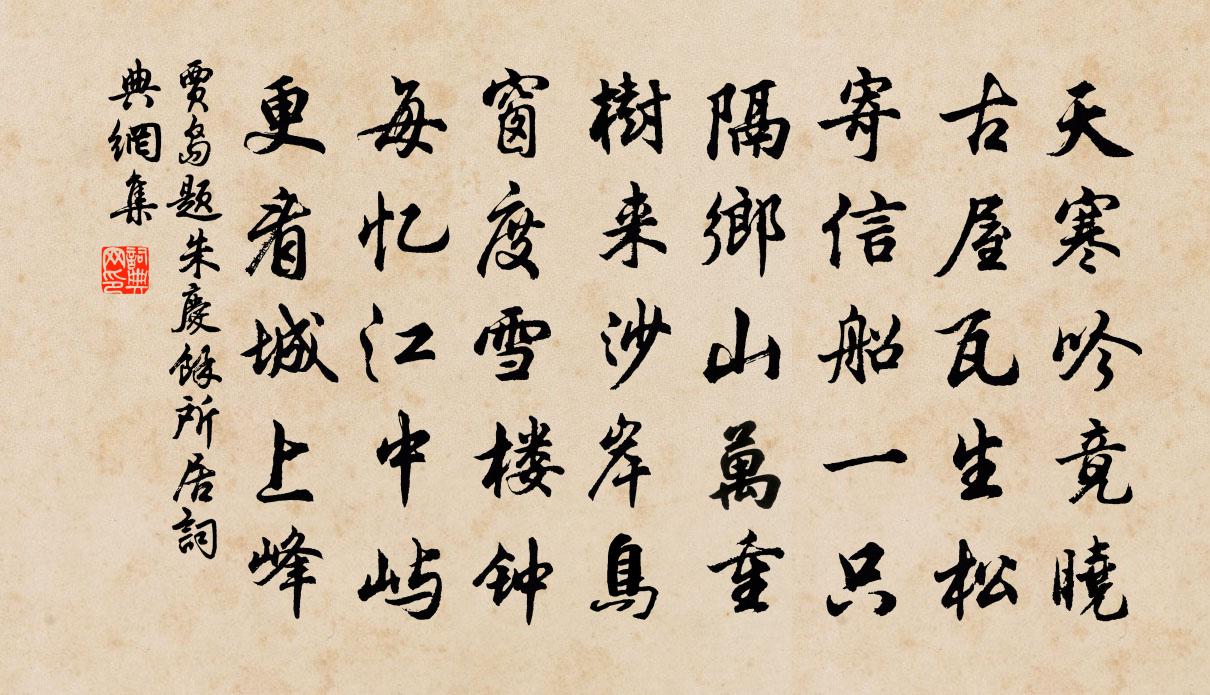 天寒吟竟曉
古屋瓦生松
寄信船一只
隔鄉山萬重
樹来沙岸鳥
窗度雪楼钟
每忆江中屿
更看城上峰
賈島題朱慶餘所居詞
典網集
詞典網印